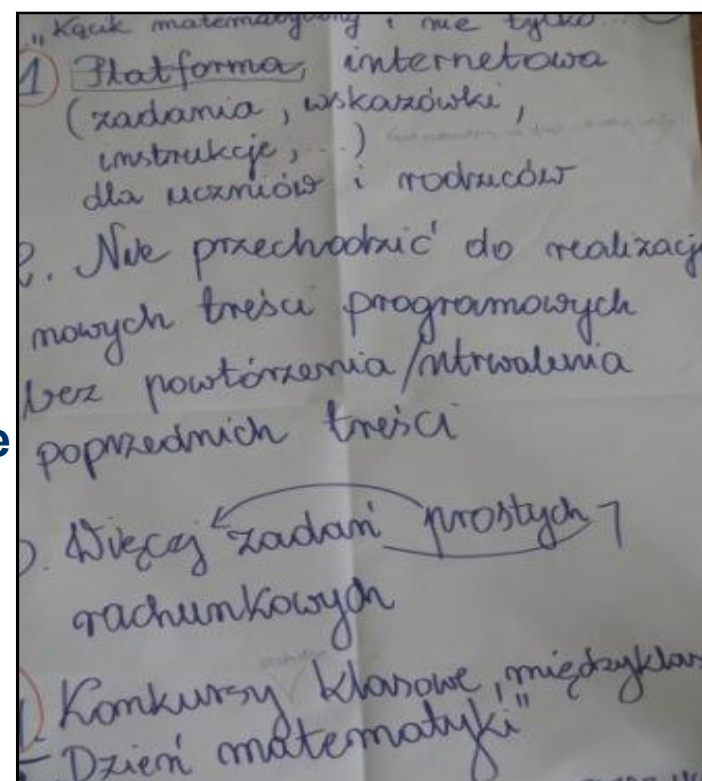 "Kącik matematyczny i nie tylko...
1 Platforma internetowa
(zadania, wskazówki,
instrukcje, ...)
dla uczniów i rodziców
2. Nie przechodzić do realizacji
nowych treści programowych
bez powtórzenia/utrwalenia
e
poprzednich treści
Więcej zadań prostych
rachunkowych
Konkursy klasowe, międzyklas
- Dzień matematyki"